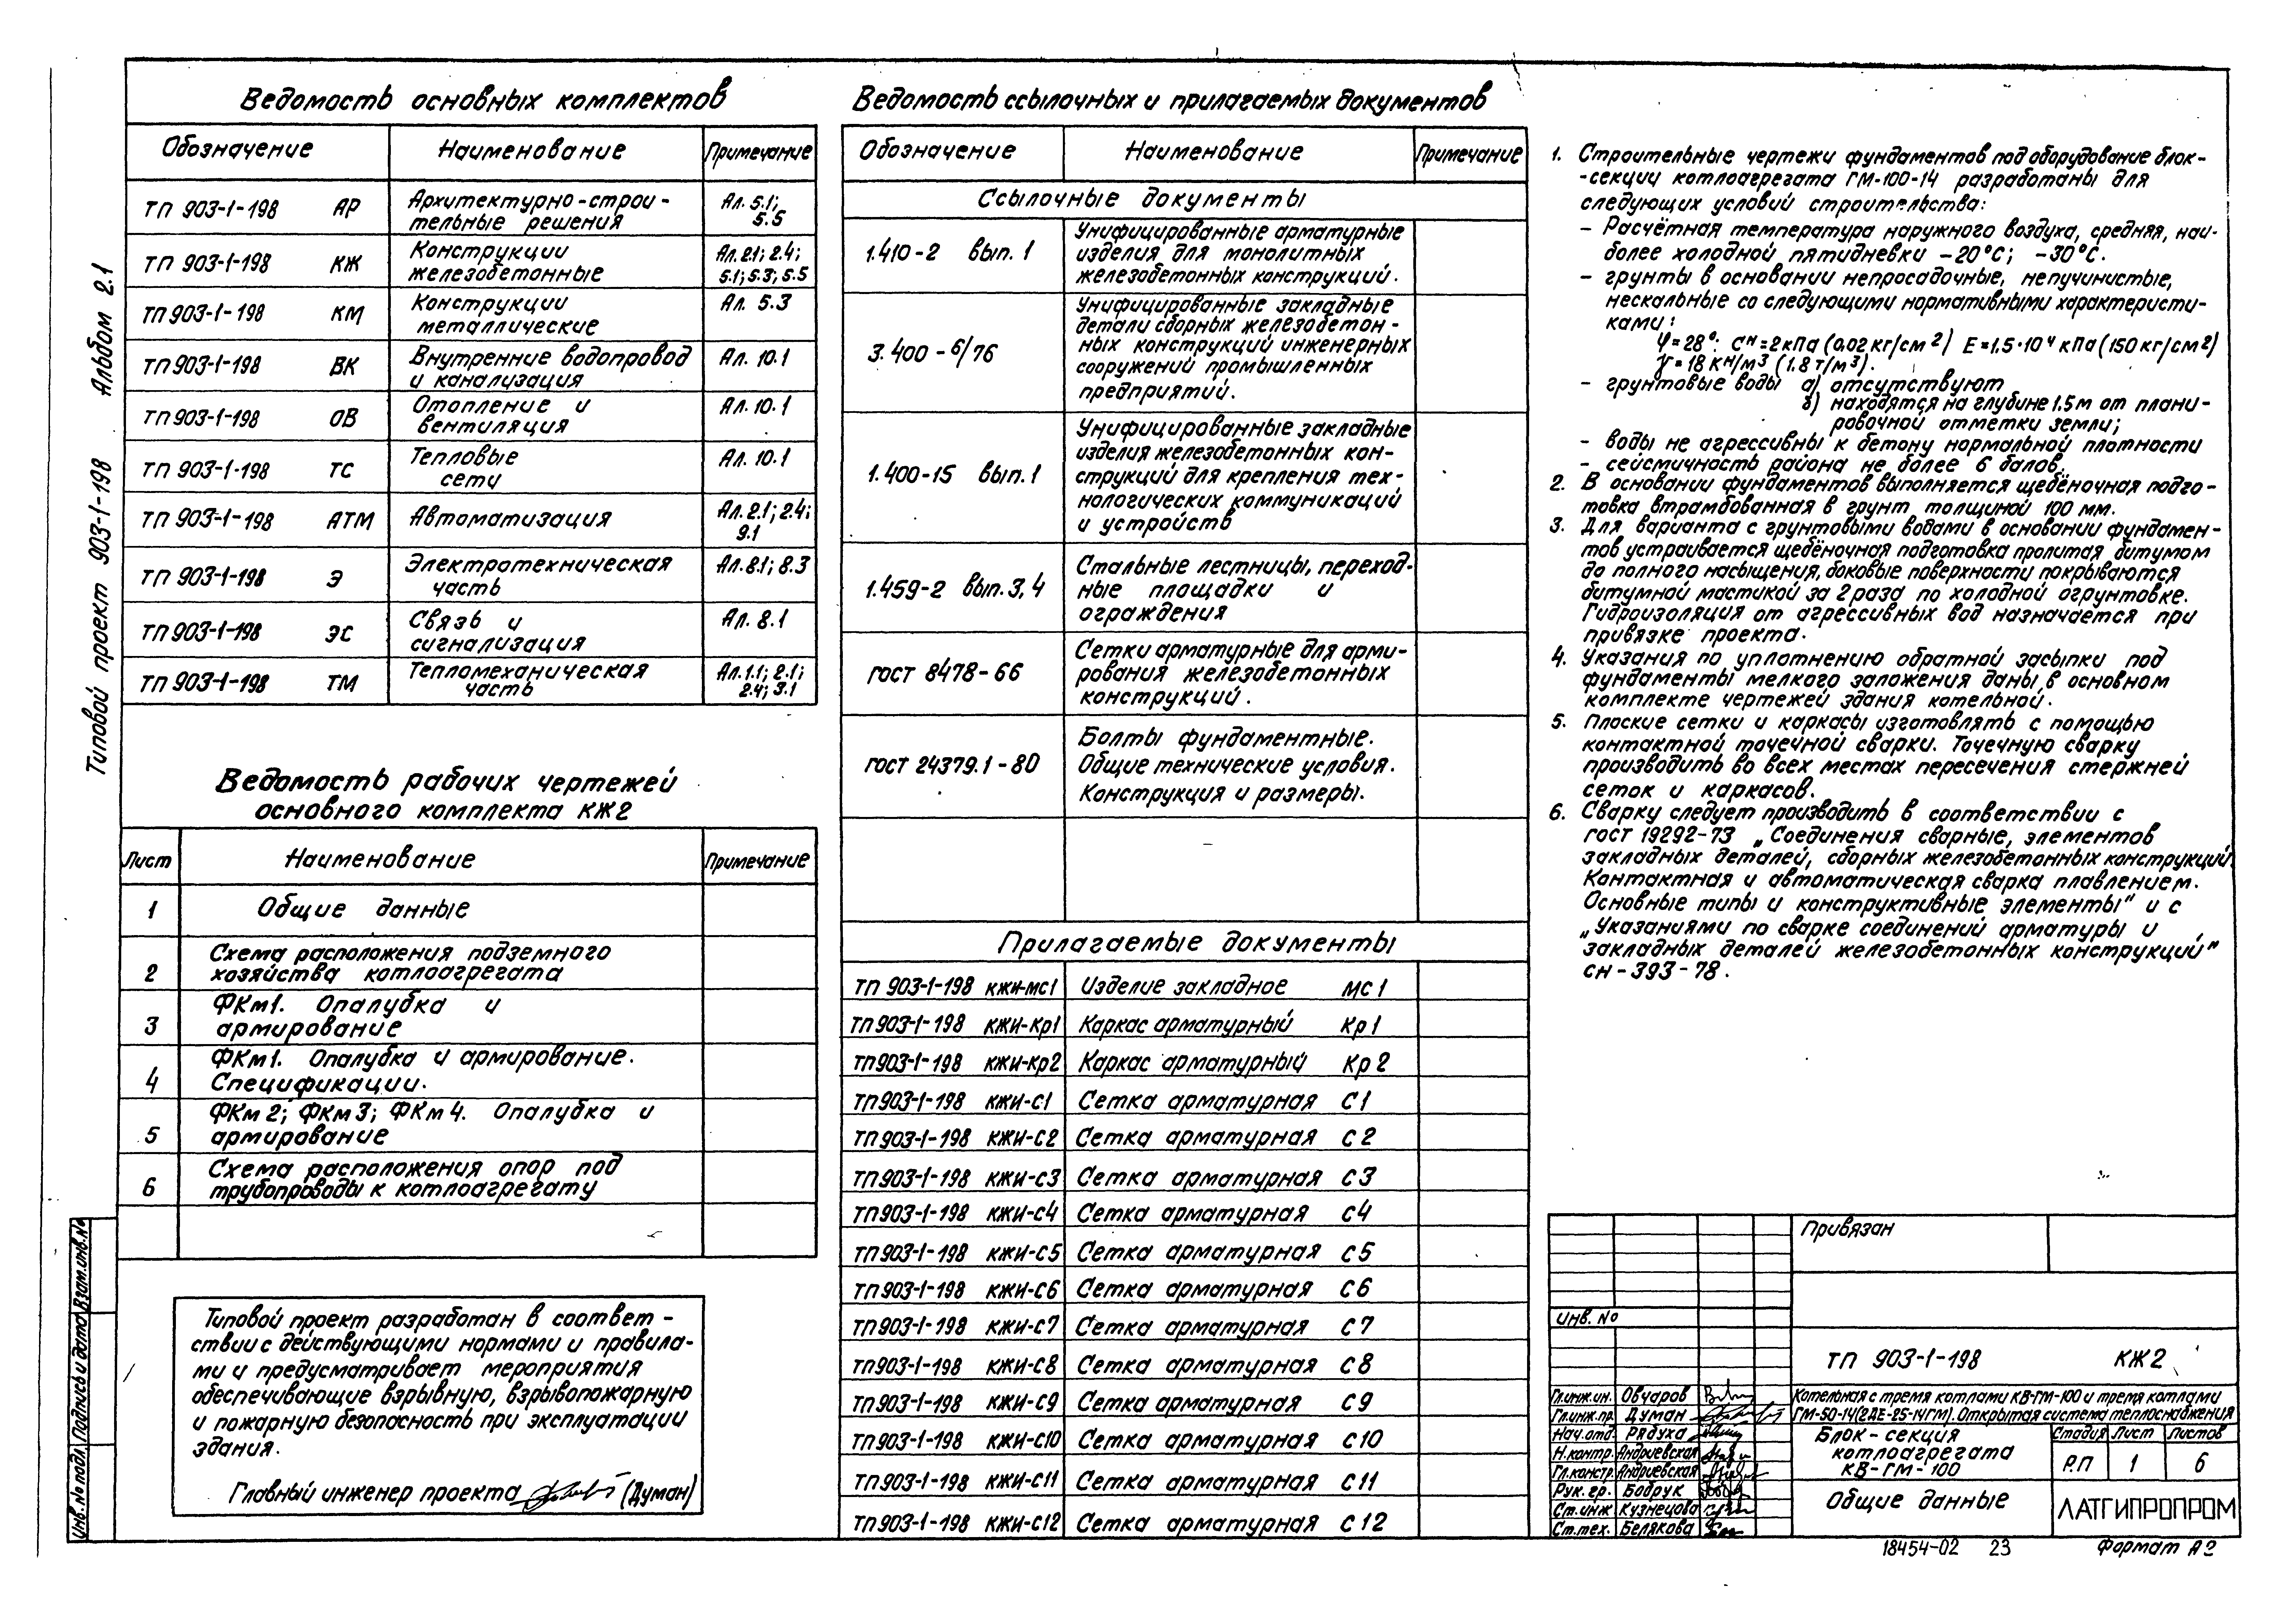 Типовой проект 903-1-198 Альбом 2.1
Ведомость основных комплектов
Обозначение Наименование Примечание
ТП 903-1-198 АР Архитектурно-строи-
тельные решения Ал. 5.1;
5.5
ТП 903-1-198 КЖ Конструкции
железобетонные Ал. 2.1; 2.4;
5.1; 5.3; 5.5
ТП 903-1-198 КМ Конструкции
металлические Ал. 5.3
ТП 903-1-198 ВК Внутренние водопровод
и канализация Ал. 10.1
ТП 903-1-198 ОВ Отопление и
вентиляция Ал. 10.1
ТП 903-1-198 ТС Тепловые
сети Ал. 10.1
ТП 903-1-198 АТМ Автоматизация Ал. 2.1; 2.4;
9.1
ТП 903-1-198 Э Электротехническая
часть Ал. 8.1; 8.3
ТП 903-1-198 ЭС Связь и
сигнализация Ал. 8.1
ТП 903-1-198 ТМ Тепломеханическая
часть Ал. 1.1; 2.1;
2.4; 3.1
Ведомость рабочих чертежей
основного комплекта КЖ2
Лист Наименование Примечание
1 Общие данные
2 Схема расположения подземного
хозяйства котлоагрегата
3 ФКм1. Опалубка и
армирование
4 ФКм1. Опалубка и армирование.
Спецификации.
5 ФКм2; ФКм3; ФКм4. Опалубка и
армирование
6 Схема расположения опор под
трубопроводы к котлоагрегату
Типовой проект разработан в соответ-
ствии с действующими нормами и правила-
ми и предусматривает мероприятия
обеспечивающие взрывную, взрывопожарную
и пожарную безопасность при эксплуатации
здания.
Главный инженер проекта (Думан)
Инв. № подл. Подпись и дата Взам. инв. №
Ведомость ссылочных и прилагаемых документов
Обозначение Наименование Примечание
Ссылочные документы
1.410-2 вып. 1 Унифицированные арматурные
изделия для монолитных
железобетонных конструкций.
3.400-6/76 Унифицированные закладные
детали сборных железобетон-
ных конструкций инженерных
сооружений промышленных
предприятий.
1.400-15 вып. 1 Унифицированные закладные
изделия железобетонных кон-
струкций для крепления тех-
нологических коммуникаций
и устройств
1.459-2 вып. 3, 4 Стальные лестницы, переход-
ные площадки и
ограждения
ГОСТ 8478-66 Сетки арматурные для арми-
рования железобетонных
конструкций.
ГОСТ 24379.1-80 Болты фундаментные.
Общие технические условия.
Конструкция и размеры.
Прилагаемые документы
ТП 903-1-198 КЖИ-МС1 Изделие закладное МС1
ТП 903-1-198 КЖИ-Кр1 Каркас арматурный Кр1
ТП 903-1-198 КЖИ-Кр2 Каркас арматурный Кр2
ТП 903-1-198 КЖИ-С1 Сетка арматурная С1
ТП 903-1-198 КЖИ-С2 Сетка арматурная С2
ТП 903-1-198 КЖИ-С3 Сетка арматурная С3
ТП 903-1-198 КЖИ-С4 Сетка арматурная С4
ТП 903-1-198 КЖИ-С5 Сетка арматурная С5
ТП 903-1-198 КЖИ-С6 Сетка арматурная С6
ТП 903-1-198 КЖИ-С7 Сетка арматурная С7
ТП 903-1-198 КЖИ-С8 Сетка арматурная С8
ТП 903-1-198 КЖИ-С9 Сетка арматурная С9
ТП 903-1-198 КЖИ-С10 Сетка арматурная С10
ТП 903-1-198 КЖИ-С11 Сетка арматурная С11
ТП 903-1-198 КЖИ-С12 Сетка арматурная С12
1. Строительные чертежи фундаментов под оборудование блок-
-секции котлоагрегата ГМ-100-14 разработаны для
следующих условий строительства:
- Расчётная температура наружного воздуха, средняя, наи-
более холодной пятидневки -20°С; -30°С.
- грунты в основании непросадочные, непучинистые,
нескальные со следующими нормативными характеристи-
ками:
φ=28°; Cᴴ=2кПа (0,02кг/см²) E=1.5·10⁴ кПа (150 кг/см²)
γ=18 кН/м³ (1.8 т/м³).
- грунтовые воды а) отсутствуют
б) находятся на глубине 1.5м от плани-
ровочной отметки земли;
- воды не агрессивны к бетону нормальной плотности
- сейсмичность района не более 6 балов.
2. В основании фундаментов выполняется щебёночная подго-
товка втрамбованная в грунт толщиной 100 мм.
3. Для варианта с грунтовыми водами в основании фундамен-
тов устраивается щебёночная подготовка пролитая битумом
до полного насыщения, боковые поверхности покрываются
битумной мастикой за 2 раза по холодной огрунтовке.
Гидроизоляция от агрессивных вод назначается при
привязке проекта.
4. Указания по уплотнению обратной засыпки под
фундаменты мелкого заложения даны в основном
комплекте чертежей здания котельной.
5. Плоские сетки и каркасы изготовлять с помощью
контактной точечной сварки. Точечную сварку
производить во всех местах пересечения стержней
сеток и каркасов.
6. Сварку следует производить в соответствии с
ГОСТ 19292-73 „Соединения сварные, элементов
закладных деталей, сборных железобетонных конструкций.
Контактная и автоматическая сварка плавлением.
Основные типы и конструктивные элементы" и с
„Указаниями по сварке соединений арматуры и
закладных деталей железобетонных конструкций"
СН-393-78.
Привязан
Инв. №
ТП 903-1-198 КЖ2
Гл.инж.ин. Овчаров
Гл.инж.пр. Думан
Нач.отд. Рядуха
Н.контр. Андриевская
Гл.констр. Андриевская
Рук. гр. Бодрук
Ст.инж Кузнецова
Ст.тех. Белякова
Котельная с тремя котлами КВ-ГМ-100 и тремя котлами
ГМ-50-14(2ДЕ-25-14ГМ). Открытая система теплоснабжения
Блок-секция
котлоагрегата
КВ-ГМ-100
Стадия Лист Листов
Р.П 1 6
Общие данные
ЛАТГИПРОПРОМ
18454-02 23 Формат А2